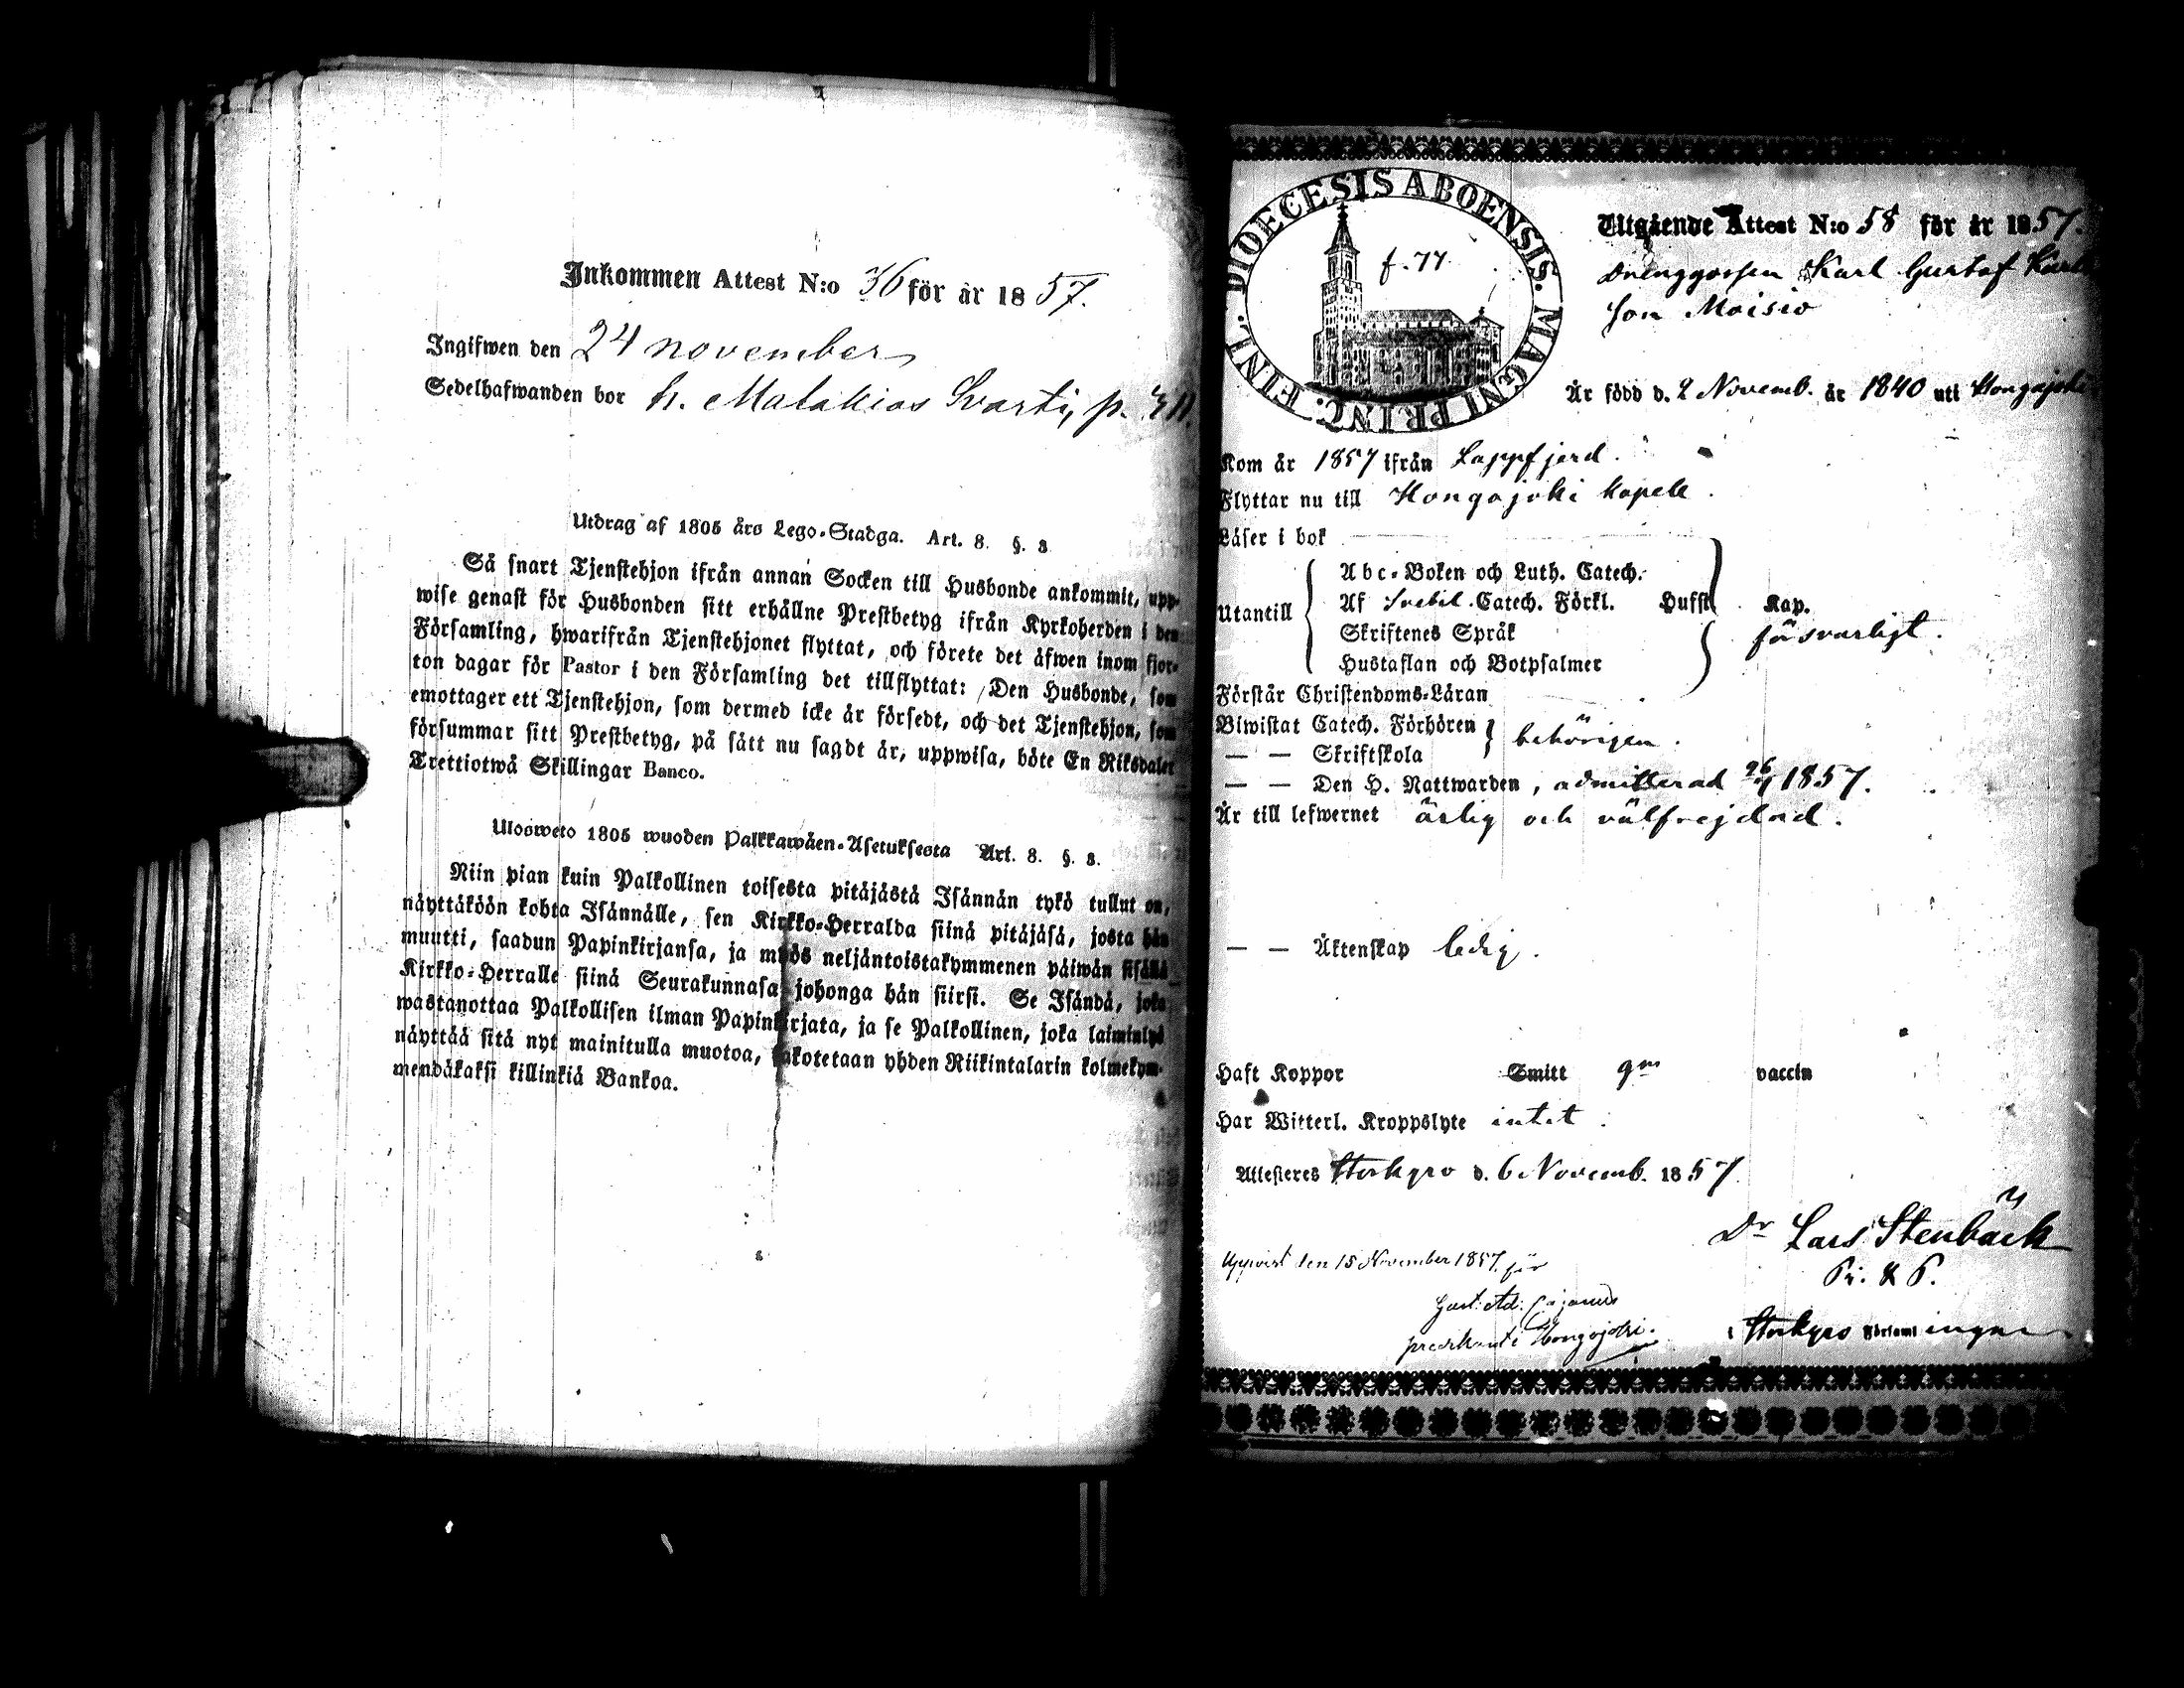 Inkommen Attest N:o 36 för år 1857.
Ingifwen den 24 november
Sedelhafwanden bor h. Malakias Svarti, p.
Utdrag af 1805 års Lego-Stadga. Art. 8. §. 3
Så snart Tjenstehjon ifrån annan Socken till Husbonde ankommit, upp-
wise genast för Husbonden sitt erhållne Prestbetyg ifrån Kyrkoherden i den
Församling, hwarifrån Tjenstehjonet flyttat, och förete det äfwen inom fjor-
ton dagar för Pastor i den Församling det tillflyttat: Den Husbonde, som
emottager ett Tjenstehjon, som dermed icke är försedt, och det Tjenstehjon, som
försummar sitt Prestbetyg, på sätt nu sagdt är, uppwisa, böte En Riksdaler
Trettiotwå Skillingar Banco.
Ulosweto 1805 wuoden Palkkawäen-Asetuksesta Art. 8. §. 3.
Niin pian kuin Palkollinen toisesta pitäjästä Isännän tykö tullut on,
näyttäköön kohta Isännälle, sen Kirkko-Herralda siinä pitäjäsä, josta hän
muutti, saadun Papinkirjansa, ja myös neljäntoistakymmenen päiwän sisällä
Kirkko-Herralle siinä Seurakunnasa johonga hän siirsi. Se Isändä, joka
wastanottaa Palkollisen ilman Papinkirjata, ja se Palkollinen, joka laiminlyö
näyttää sitä nyt mainitulla muotoa, sakotetaan yhden Riikintalarin kolmekym-
mendäkaksi killinkiä Bankoa.
DIOECESIS ABOENSIS. MAGNI PRINC. FINL.
f. 77.
Utgående Attest N:o 58 för år 1857.
Drenggossen Karl Gustaf Karls
son Moisio
Är född d. 2 Novemb. år 1840 uti Hongojoki
Kom år 1857 ifrån Lappfjerd.
Flyttar nu till Hongojoki kapell.
Läser i bok
Utantill
Abc-Boken och Luth. Catech.
Af Svebil. Catech. Förkl. Hufst. Kap.
Skriftenes Språk
Hustaflan och Botpsalmer
försvarligt.
Förstår Christendoms-Läran
Biwistat Catech. Förhören
— — Skriftskola
behörigen.
— — Den H. Nattwarden, admitterad 1857.
Är till lefwernet ärlig och välfrejdad.
— — Äktenskap ledig.
Haft Koppor Smitt gm vaccin
Har Witterl. Kroppslyte intet.
Attesteres Storkyro d. 6 Novemb. 1857.
Dr Lars Stenbäck
Pr. & P.
i Storkyro Församlingar
Uppvist den 15 November 1857, för
Gust. Ad. Cajanus
predikant i Hongojoki.